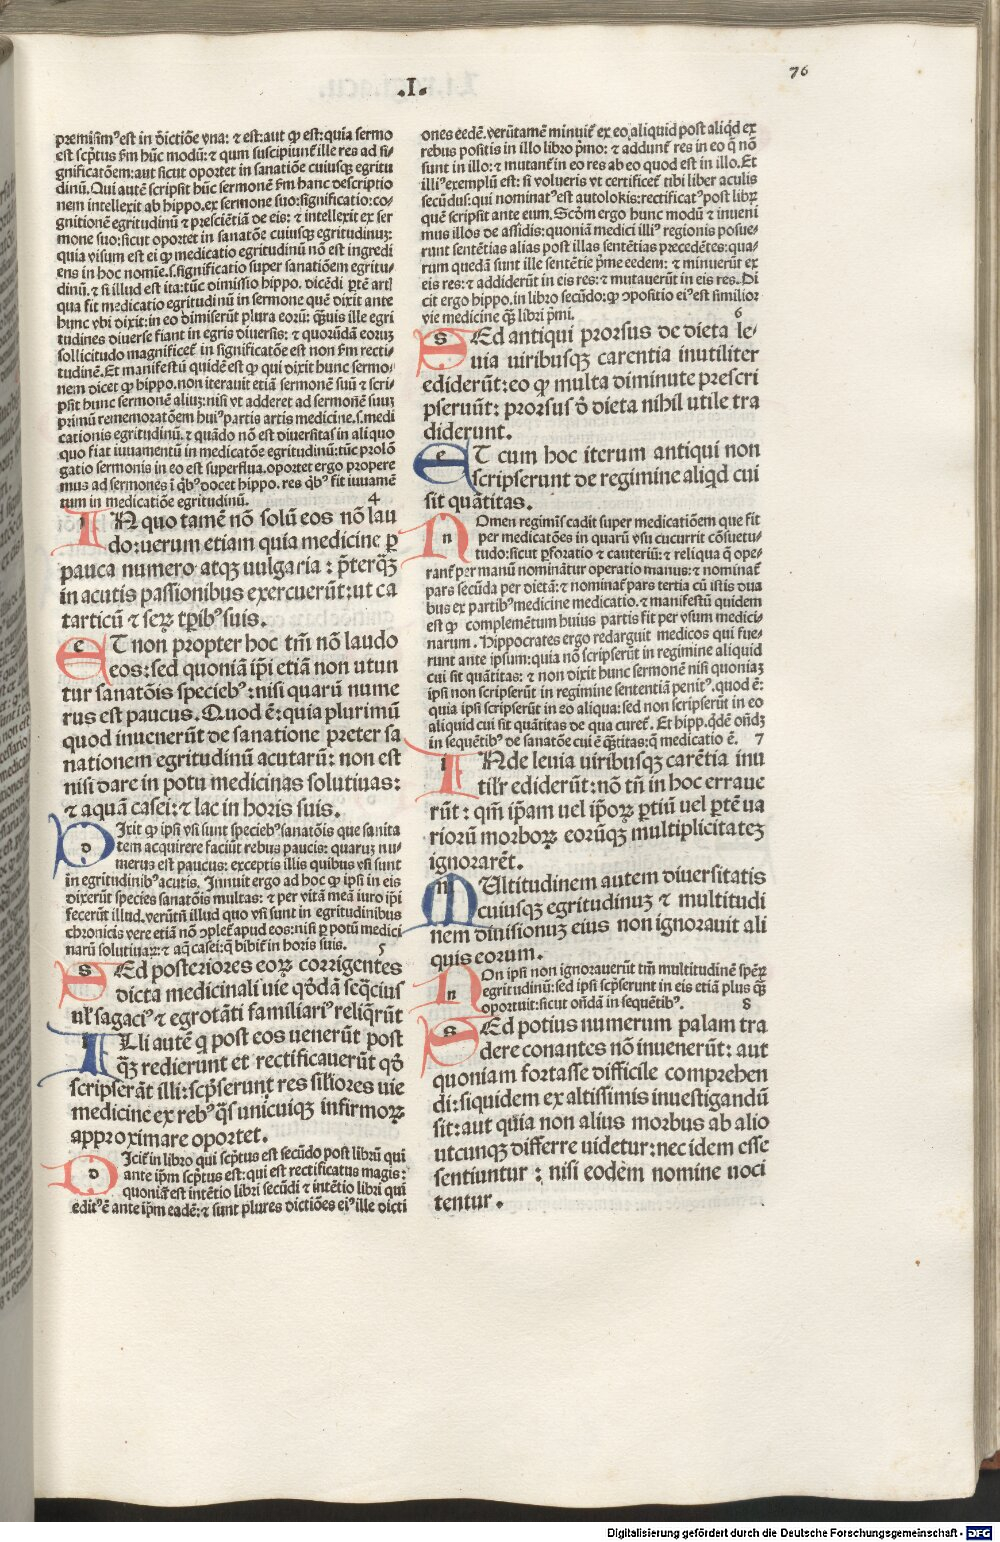 76
.I.
premisim᷒ est in dictiōe vna: ⁊ est: aut ꝙ est: quia sermo
est scp̄tus f̄m hūc modū: ⁊ qum suscipiunt̄ ille res ad si/
gnificatōem: aut sicut oportet in sanatiōe cuiusqꝫ egritu
dinū. Qui autē scripsit hūc sermonē f̄m hanc descriptio
nem intellexit ab hippo. ex sermone suo: significatio: co/
gnitionē egritudinū ⁊ prescīētiā de eis: ⁊ intellexit ex ser
mone suo: sicut oportet in sanatōe cuiusqꝫ egritudinuꝫ:
quia visum est ei ꝙ medicatio egritudinū nō est ingredi
ens in hoc nomīe. s. significatio super sanatiōem egritu/
dinū. ⁊ si illud est ita: tūc dimissio hippo. dicēdi p̄tē art̄
qua fit medicatio egritudinū in sermone quē dixit ante
hunc vbi dixit: in eo dimiserūt plura eorū: qꝫuis ille egri
tudines diuerse fiant in egris diuersis: ⁊ quorūdā eoruꝫ
sollicitudo magnificet̄ in significatōe est non f̄m recti/
tudinē. Et manifestū quidē est ꝙ qui dixit hunc sermo/
nem dicet ꝙ hippo. non iterauit etiā sermonē suū ⁊ scri/
psit hunc sermonē aliuꝫ: nisi vt adderet ad sermonē suuꝫ
primū rememoratōem hui᷒ partis artis medicine. s. medi
cationis egritudinū. ⁊ quādo nō est diuersitas in aliquo
quo fiat iuuamentū in medicatōe egritudinū: tūc prolō
gatio sermonis in eo est superflua. oportet ergo propere
mus ad sermones ī qb᷒ docet hippo. res qb᷒ fit iuuamē
tum in medicatiōe egritudinū. 4
IN quo tamē nō solū eos nō lau
do: uerum etiam quia medicine ꝑ
pauca numero atqꝫ uulgaria: p̄terqꝫ
in acutis passionibus exercuerūt: ut ca
tarticū ⁊ serꝝ tp̄ib᷒ suis.
ET non propter hoc tm̄ nō laudo
eos: sed quoniā ip̄i etiā non utun
tur sanatōis specieb᷒: nisi quarū nume
rus est paucus. Quod ē: quia plurimū
quod inuenerūt de sanatione preter sa
nationem egritudinū acutarū: non est
nisi dare in potu medicinas solutiuas:
⁊ aquā casei: ⁊ lac in horis suis.
DIxit ꝙ ipsi vsi sunt specieb᷒ sanatōis que sanita
tem acquirere faciūt rebus paucis: quaruꝫ nu/
merus est paucus: exceptis illis quibus vsi sunt
in egritudinib᷒ acutis. Innuit ergo ad hoc ꝙ ipsi in eis
dixerūt species sanatōis multas: ⁊ per vitā meā iuro ipsi
fecerūt illud. verūtn̄ illud quo vsi sunt in egritudinibus
chronicis vere etiā nō ꝯplet̄ apud eos: nisi ꝑ potū medici
narū solutiuaꝝ: ⁊ aq̄ casei: q̄ bibit̄ in horis suis. 5
SEd posteriores eorꝝ corrigentes
dicta medicinali uie qōdā seq̄cius
ul̄ sagaci᷒ ⁊ egrotāti familiari᷒ reliq̄rūt
ILli autē q post eos venerūt post
qꝫ redierunt et rectificauerūt qd̄
scripserāt illi: scp̄serunt res siliores uie
medicine ex reb᷒ qs̄ unicuiqꝫ infirmoꝝ
approximare oportet.
DIcit̄ in libro qui scp̄tus est secūdo post librū qui
ante ip̄m scp̄tus est: qui est rectificatus magis:
quoniā est intētio libri secūdi ⁊ intētio libri qui
edit᷒ ē ante ip̄m eadē: ⁊ sunt plures dictiōes ei᷒ ille dicti
ones eedē. verūtamē minuit̄ ex eo aliquid post aliqd̄ ex
rebus positis in illo libro p̄mo: ⁊ addunt̄ res in eo q̄ nō
sunt in illo: ⁊ mutant̄ in eo res ab eo quod est in illo. Et
illi᷒ exemplū est: si volueris vt certificet̄ tibi liber aculis
secūdus: qui nominat᷒ est autolokis: rectificat᷒ post libꝝ
quē scripsit ante eum. Scd̄m ergo hunc modū ⁊ inueni
mus illos de assidis: quoniā medici illi᷒ regionis posue/
runt sentētias alias post illas sentētias precedētes: qua/
rum quedā sunt ille sentētie p̄me eedem: ⁊ minuerūt ex
eis res: ⁊ addiderūt in eis res: ⁊ mutauerūt in eis res. Di
cit ergo hippo. in libro secūdo: ꝙ ꝯpositio ei᷒ est similior
vie medicine qꝫ libri p̄mi. 6
SEd antiqui prorsus de dieta le/
uia uiribusqꝫ carentia inutiliter
ediderūt: eo ꝙ multa diminute prescri
pserunt: prorsus d̄ dieta nihil utile tra
diderunt.
ET cum hoc iterum antiqui non
scripserunt de regimine aliqd cui
sit quātitas.
NOmen regimīs cadit super medicatiōem que fit
per medicatōes in quarū vsu cucurrit cōsuetu/
tudo: sicut ꝑforatio ⁊ cauteriū: ⁊ reliqua q̄ ope/
rant̄ per manū nominātur operatio manus: ⁊ nominat̄
pars secūda per dietā: ⁊ nominat̄ pars tertia cū istis dua
bus ex partib᷒ medicine medicatio. ⁊ manifestū quidem
est ꝙ complementum huius partis fit per vsum medici/
narum. Hippocrates ergo redarguit medicos qui fue/
runt ante ipsum: quia nō scripserūt in regimine aliquid
cui sit quātitas: ⁊ non dixit hunc sermonē nisi quoniaꝫ
ipsi non scripserūt in regimine sententiā penit᷒. quod ē:
quia ipsi scripserūt in eo aliqua: sed non scripserūt in eo
aliquid cui sit quātitas de qua curet̄. Et hipp. qd̄ē oñdꝫ
in sequētib᷒ de sanatōe cui ē qꝫtitas: q̄ medicatio ē. 7
INde leuia uiribusqꝫ carētia inu
tilir̄ ediderūt: nō tn̄ in hoc erraue
rūt: qm̄ ip̄am uel ip̄oꝝ ꝑtiū uel ꝑtē ua
riorū morboꝝ eorūqꝫ multiplicitateꝫ
ignorarēt.
MUltitudinem autem diuersitatis
cuiusqꝫ egritudinuꝫ ⁊ multitudi
nem diuisionuꝫ eius non ignorauit ali
quis eorum.
NOn ipsi non ignorauerūt tm̄ multitudinē spēꝝ
egritudinū: sed ipsi scp̄serunt in eis etiā plus qꝫ
oportuit: sicut oñdā in sequētib᷒. 8
SEd potius numerum palam tra
dere conantes nō inuenerūt: aut
quoniam fortasse difficile comprehen
di: siquidem ex altissimis inuestigandū
sit: aut quia non alius morbus ab alio
utcunqꝫ differre uidetur: nec idem esse
sentiuntur: nisi eodem nomine uoci
tentur.
Digitalisierung gefördert durch die Deutsche Forschungsgemeinschaft - DFG